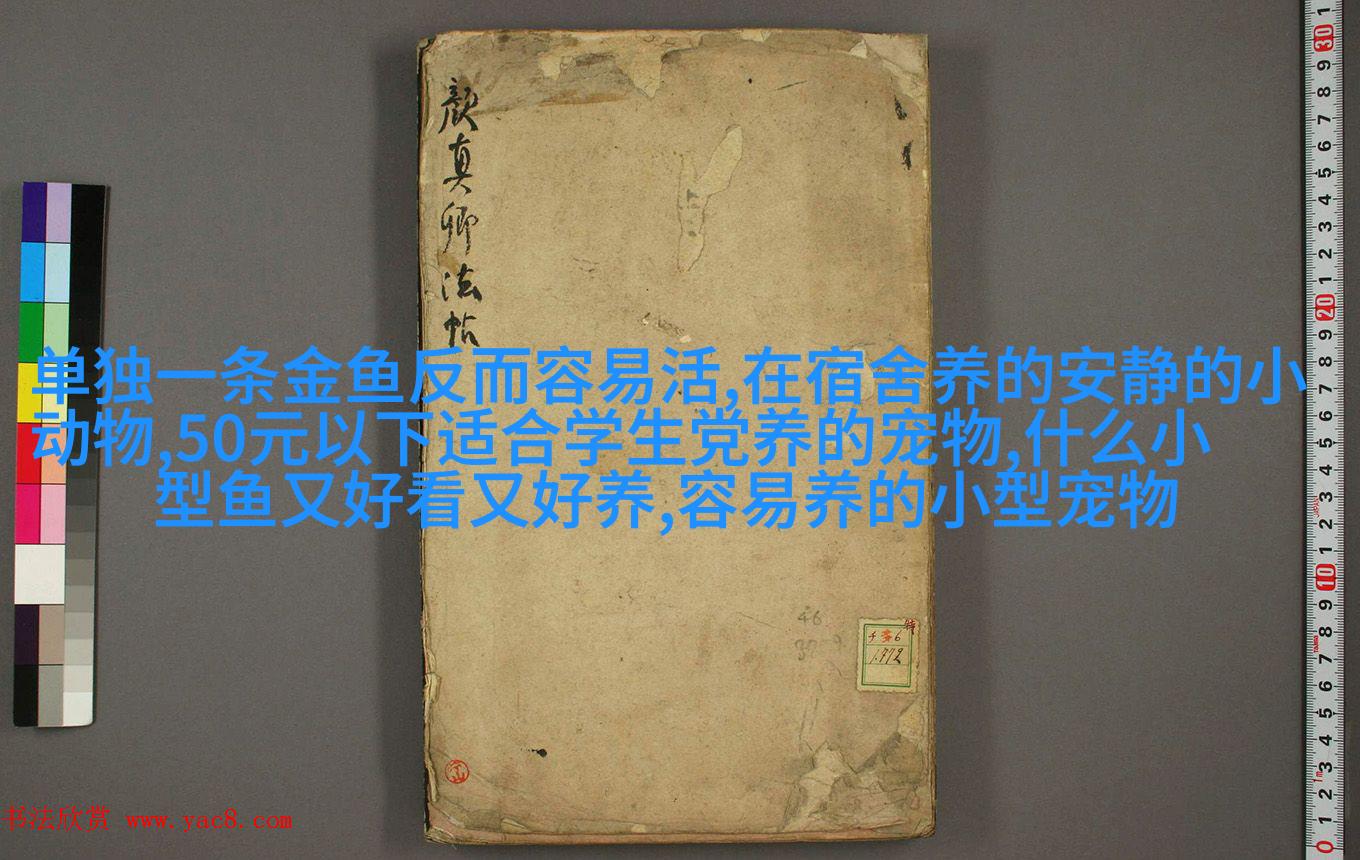 顏真卿法帖
单独一条金鱼反而容易活,在宿舍养的安静的小
动物,50元以下适合学生党养的宠物,什么小
型鱼又好看又好养,容易养的小型宠物
46
特
1772
书法欣赏 www.yac8.com
1 30 9 8 7 6 5 4 3 2 1 20 9 8 7 6 5 4 3 2 1 10 9 8 7 6 5 4 3 2 1 0